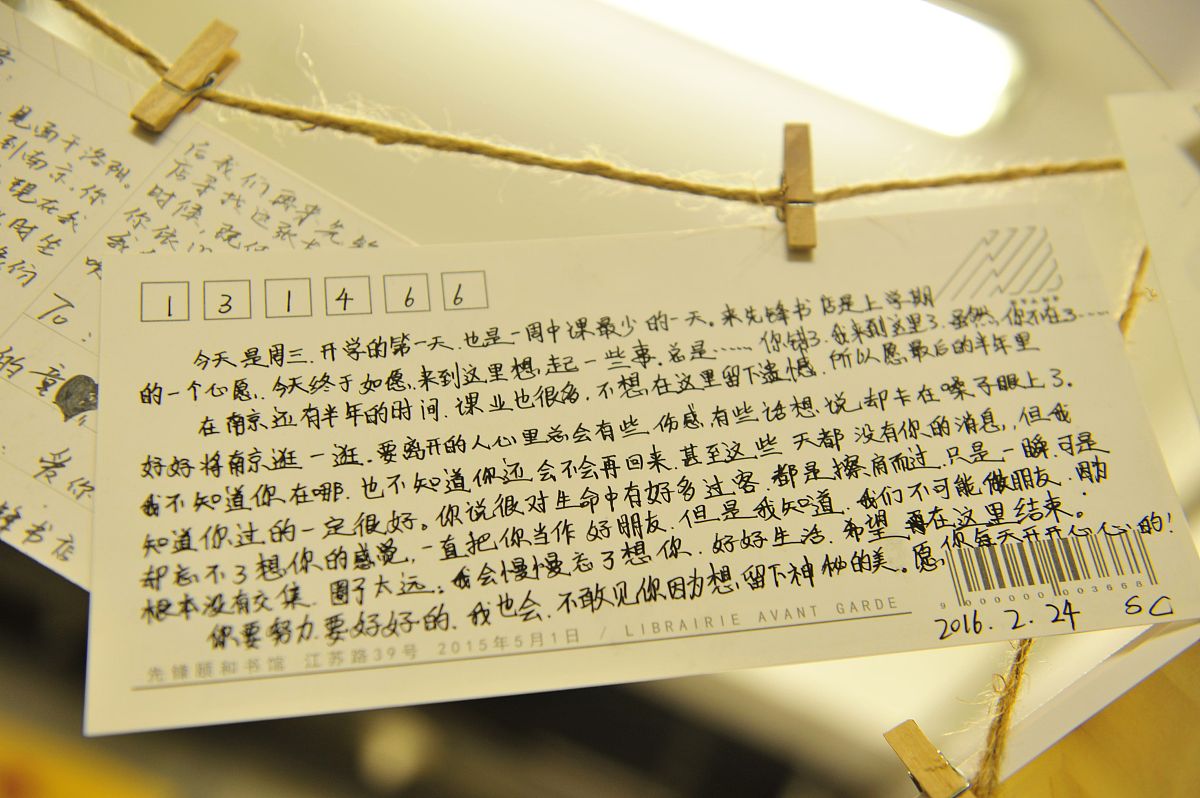 见面于洛阳。
到南京,你
现在我
时生
后我们再来先锋
店寻找这张
时候,既
你依
To:
的童
爱你
书店
1 3 1 4 6 6
今天是周三.开学的第一天.也是一周中课最少的一天。来先锋书店是上学期
的一个心愿.今天终于如愿.来到这里想起一些事.总是……你错了.我来到这里了.虽然,你不在了……
在南京还有半年的时间.课业也很多.不想在这里留下遗憾.所以愿最后的半年里
好好将南京逛一逛.要离开的人心里总会有些伤感,有些话想说却卡在嗓子眼上了。
我不知道你在哪.也不知道你还会不会再回来.甚至这些天都没有你的消息,但我
知道你过的一定很好。你说很对生命中有好多过客.都是擦肩而过.只是一瞬.可是
却忘不了想你的感觉,一直把你当作好朋友.但是我知道.我们不可能做朋友.因为
根本没有交集.圈子太远。我会慢慢忘了想你.好好生活.希望再在这里结束。
你要努力.要好好的.我也会.不敢见你因为想留下神秘的美。愿你每天开开心心的!
9 900000 003668
2016.2.24 SC
先锋颐和书馆 江苏路39号 2015年5月1日 / LIBRAIRIE AVANT GARDE